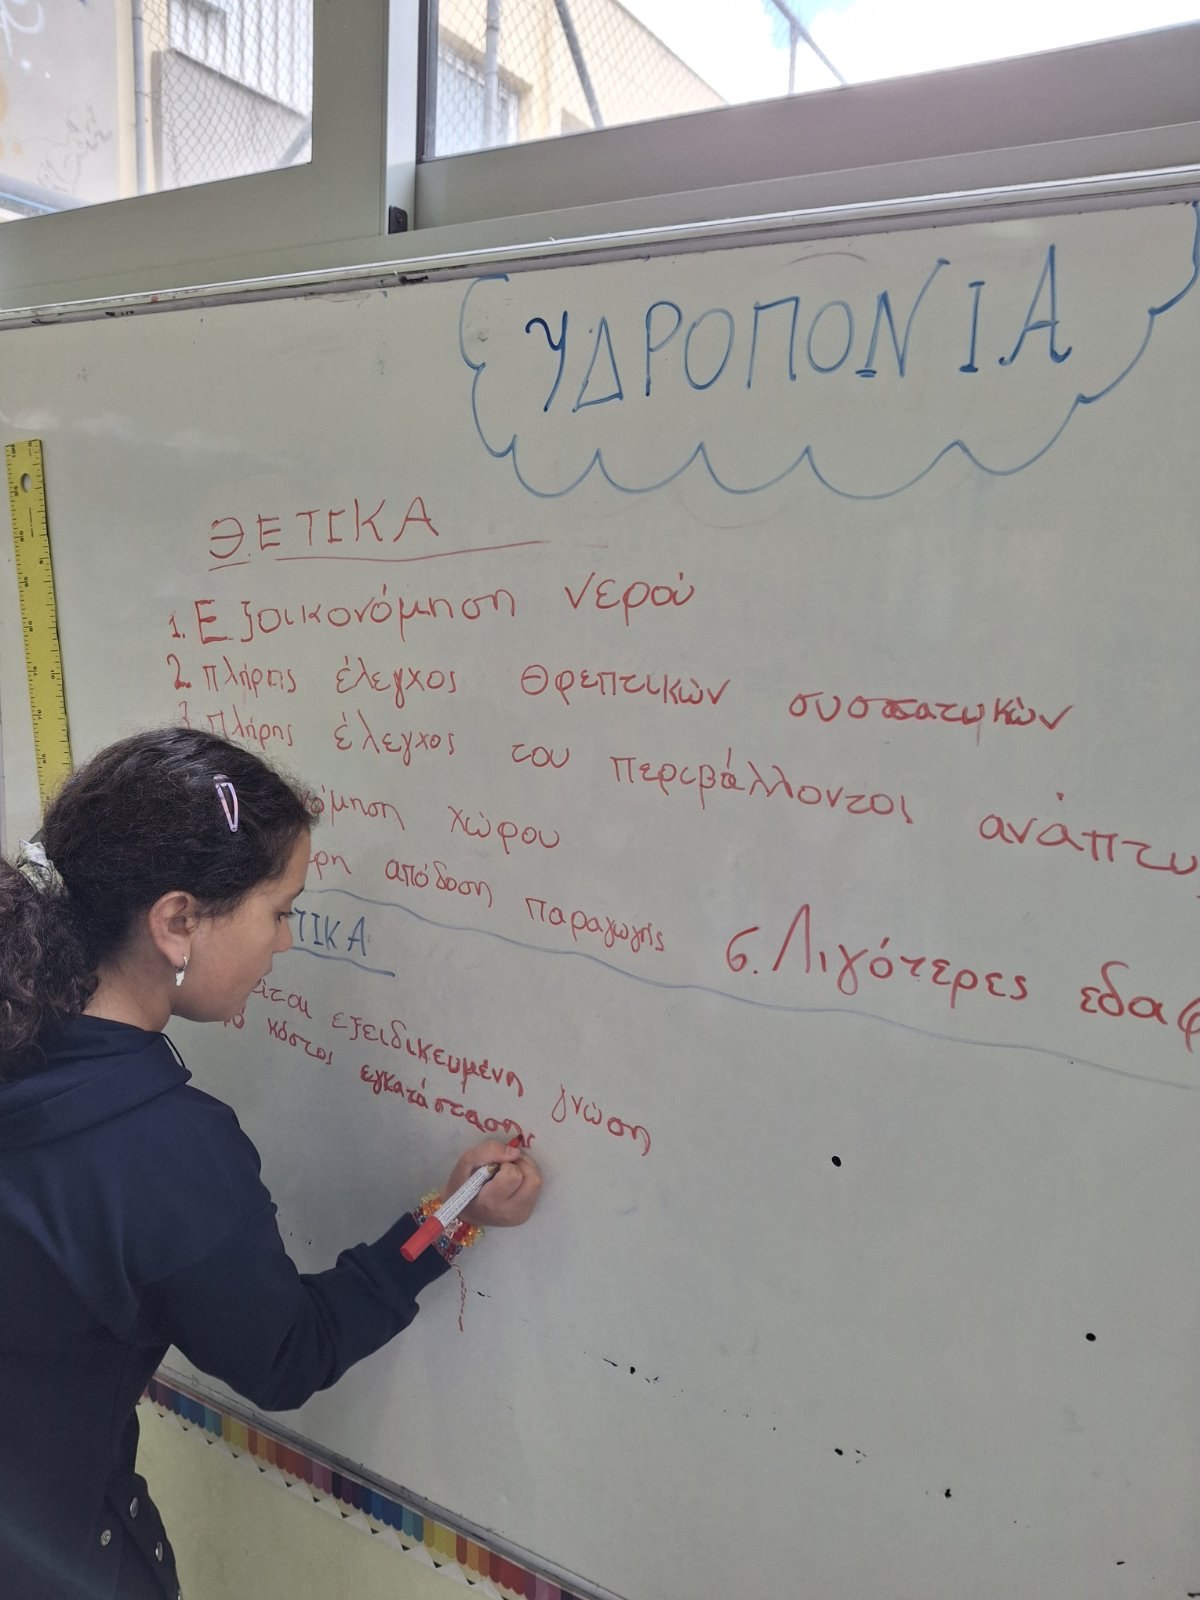 ΥΔΡΟΠΟΝΙΑ
ΘΕΤΙΚΑ
1. Εξοικονόμηση νερού
2. πλήρης έλεγχος θρεπτικών συστατικών
3. πλήρης έλεγχος του περιβάλλοντος ανάπτυ
όμηση χώρου
ερη απόδοση παραγωγής 6. Λιγότερες εδαφ
ΤΙΚΑ
είται εξειδικευμένη γνώση
κόστος εγκατάστασης